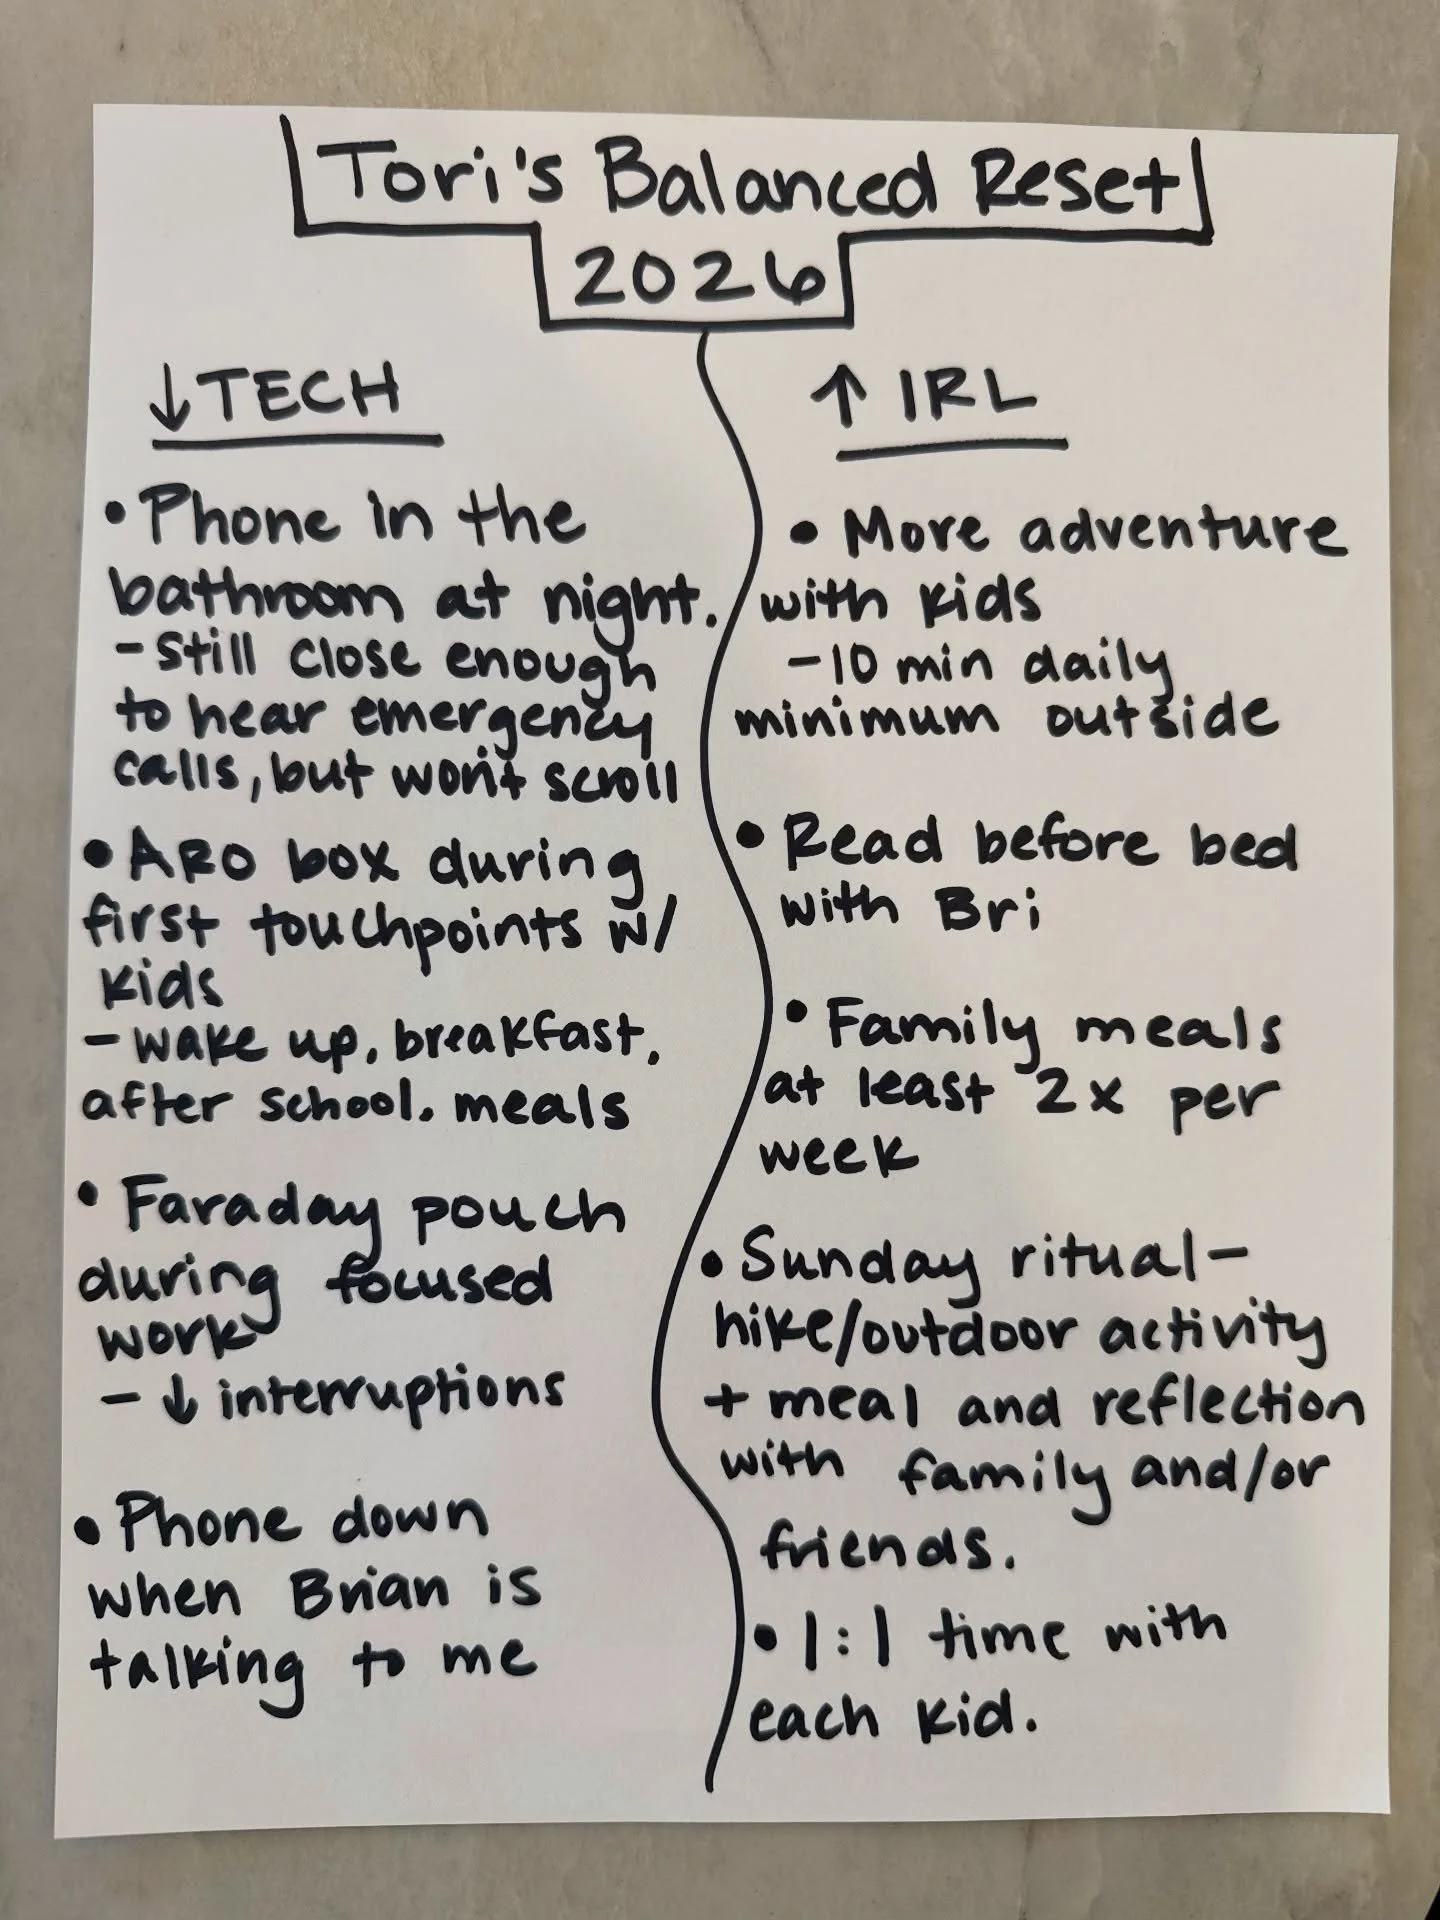 Tori's Balanced Reset
2026
↓ TECH
• Phone in the
bathroom at night.
- still close enough
to hear emergency
calls, but won't scroll
• ARO box during
first touchpoints w/
kids
- wake up, breakfast,
after school, meals
• Faraday pouch
during focused
work
- ↓ interruptions
• Phone down
when Brian is
talking to me
↑ IRL
• More adventure
with kids
- 10 min daily
minimum outside
• Read before bed
with Bri
• Family meals
at least 2x per
week
• Sunday ritual -
hike/outdoor activity
+ meal and reflection
with family and/or
friends.
• 1:1 time with
each kid.